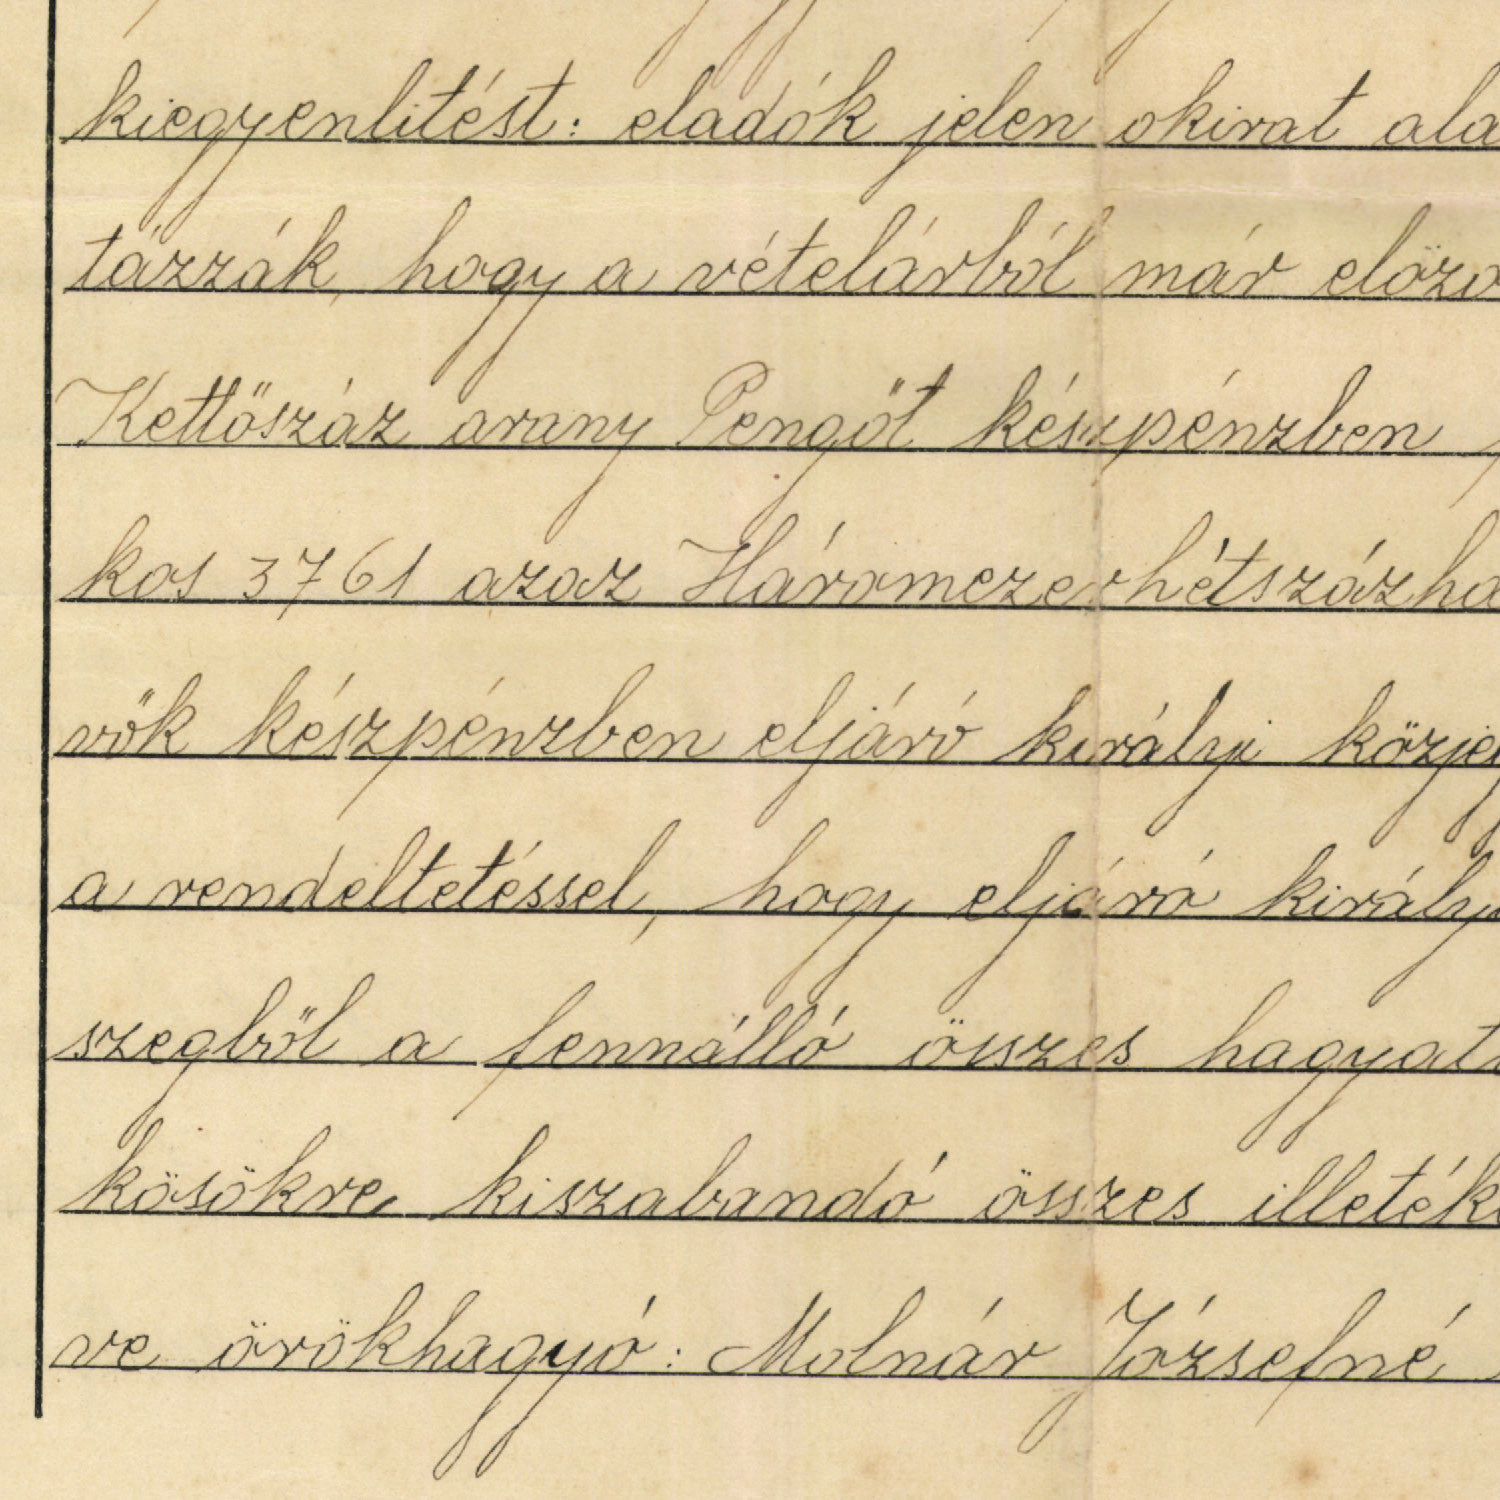 kiegyenlitést: eladók jelen okirat ala
tázzák, hogy a vételárból már elözo
Kettöszáz arany Pengöt készpénzben
kos 3761 azaz Háromezerhétszázha
vök készpénzben eljáró királyi közje
a rendeltetéssel, hogy eljáró király
szegböl a fennálló összes hagyat
kösökre, kiszabandó összes illeték
ve örökhagyó: Molnár Józsefné